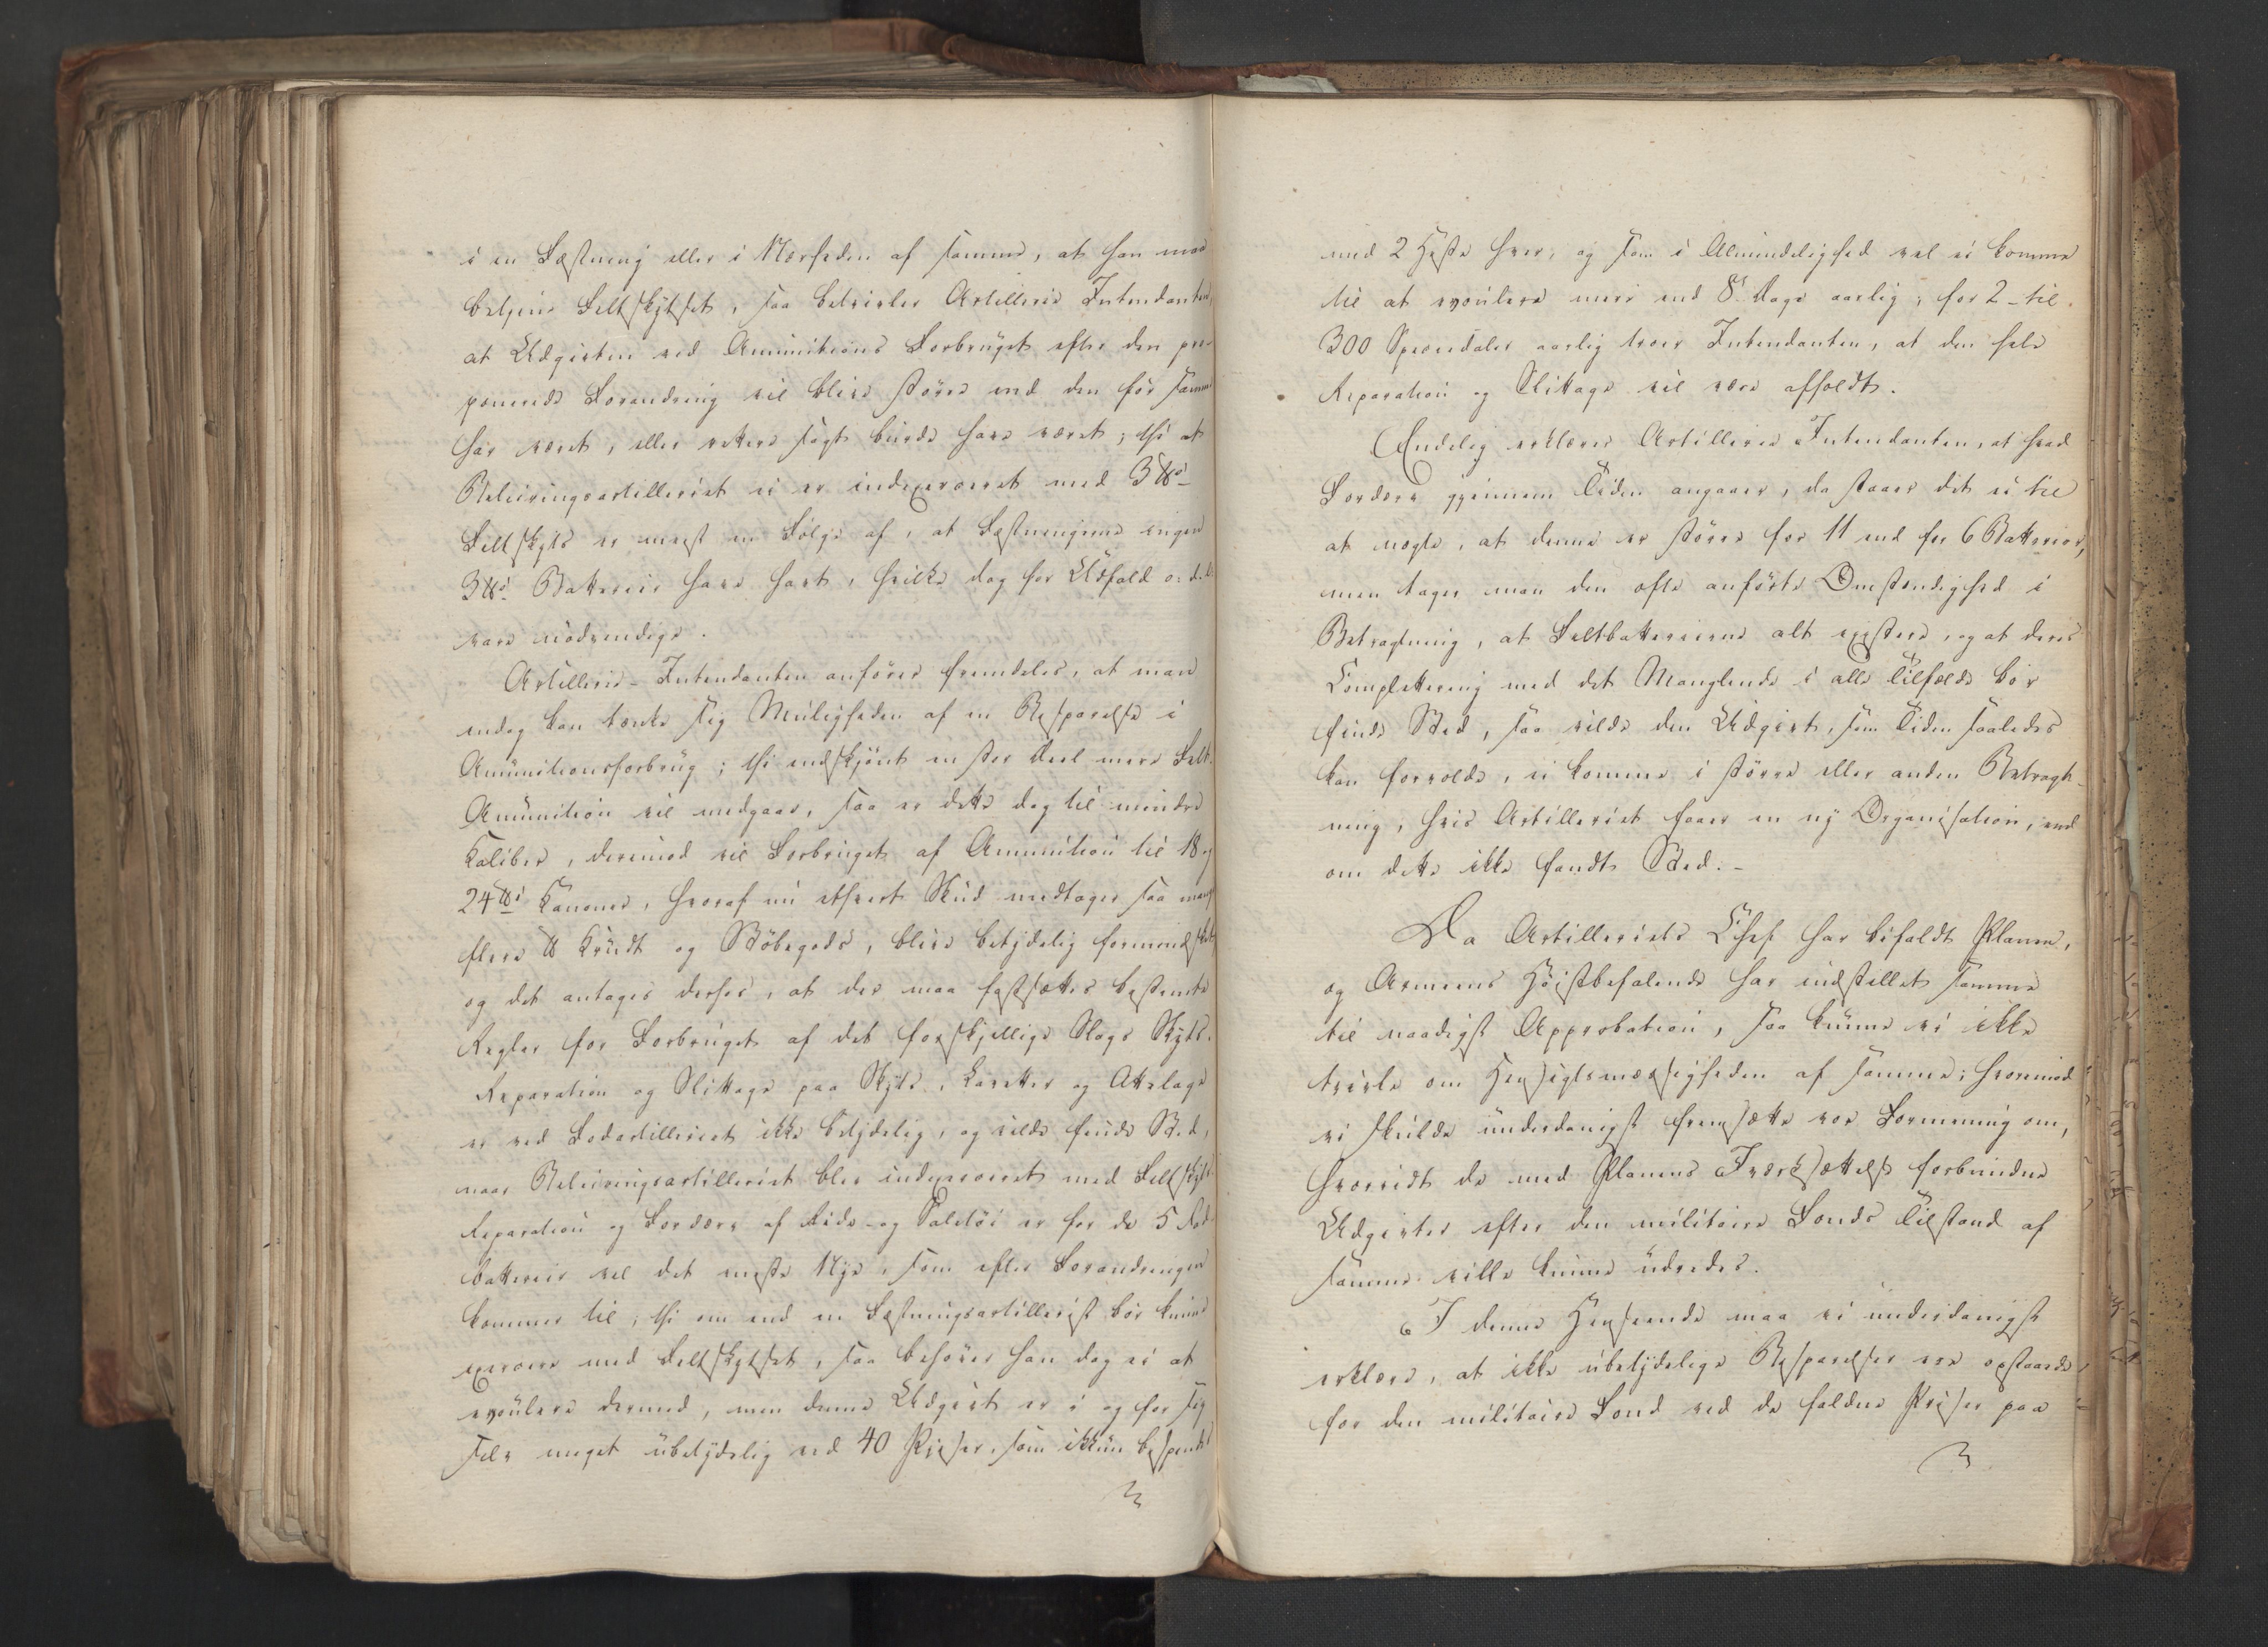 i en Fæstning eller i Nærheden af samme, at han maa
betjene Feltskytset, saa betvivler Artillerie Intendanten,
at Udgivten ved Amunitions Forbruget efter den pro-
ponerede Forandring vil blive større end den før samme
har været, eller rettere sagt burde have været; thi at
Beleiringsartilleriet ei er indexerceret med 3 ℔s
Feltskyts er mest en Følge af, at Fæstningerne ingen
3 ℔s Batterier have havt, hvilke dog for Udfald o: d: l:
vare nødvendige.
Artillerie-Intendanten anfører fremdeles, at man
endog kan tænke sig Muligheden af en Besparelse i
Amunitionsforbrug; thi endskjønt en stor Deel mere Felt-
Amunition vil medgaae, saa er dette dog til mindre
Kaliber, derimod vil Forbruget af Amunition til 18 og
24 ℔s Kanoner, hvoraf nu ethvert Skud medtager saa mange
flere ℔ Krudt og Støbegods, blive betydelig formindsket,
og det antages derhos, at der maa fastsættes bestemte
Regler for Forbruget af det forskjellige Slags Skyts.
Reparation og Slittage paa Skyts, Lavetter og Attelage
er ved Fodartilleriet ikke betydelig, og vilde finde Sted,
naar Beleiringsartilleriet blev indexerceret med Feltskyts.
Reparation og Fordærv af Ride- og Sæletøi er for de 5 Fod-
batterier vel det meste Nye, som efter Forandringen
kommer til; thi om end en Fæstningsartillerist bør kunne
exercere med Feltskytset, saa behøver han dog ei at
evoulere dermed, men denne Udgivt er i og for sig
selv meget ubetydelig ved 40 Piecer, som ikkun bespændes
med 2 Heste hver, og som i Almindelighed vel ei komme
til at evoulere mere end 8 Dage aarlig; for 2 - til
300 Speciedaler aarlig troer Intendanten, at den hele
Reparation og Slitage vil være afholdt.
Endelig erklærer Artillerie Intendanten, at hvad
Fordærv gjennem Tiden angaaer, da staaer det ei til
at negte, at denne er større for 11 end for 6 Batterier,
men tager man den ofte anførte Omstændighed i
Betragtning, at Feltbatterierne alt existere, og at deres
Complettering med det Manglende i alle Tilfælde bør
finde Sted, saa vilde den Udgivt, som Tiden saaledes
kan forvolde, ei komme i større eller anden Betragt-
ning, hvis Artilleriet faaer en ny Organisation, end
om dette ikke fandt Sted. -
Da Artilleriets Chef har bifaldt Planen,
og Armeens Høistbefalende har indstillet samme
til naadigst Approbation, saa kunne vi ikke
tvivle om Hensigtsmæssigheden af samme; hvorimod
vi skulde underdanigst fremsætte vor Formening om,
hvorvidt de med Planens Iværksættelse forbundne
Udgivter efter den militaire Fonds Tilstand af
samme ville kunne udredes.
I denne Henseende maa vi underdanigst
erklære, at ikke ubetydelige Besparelser ere opstaaede
for den militaire Fond ved de faldne Priser paa